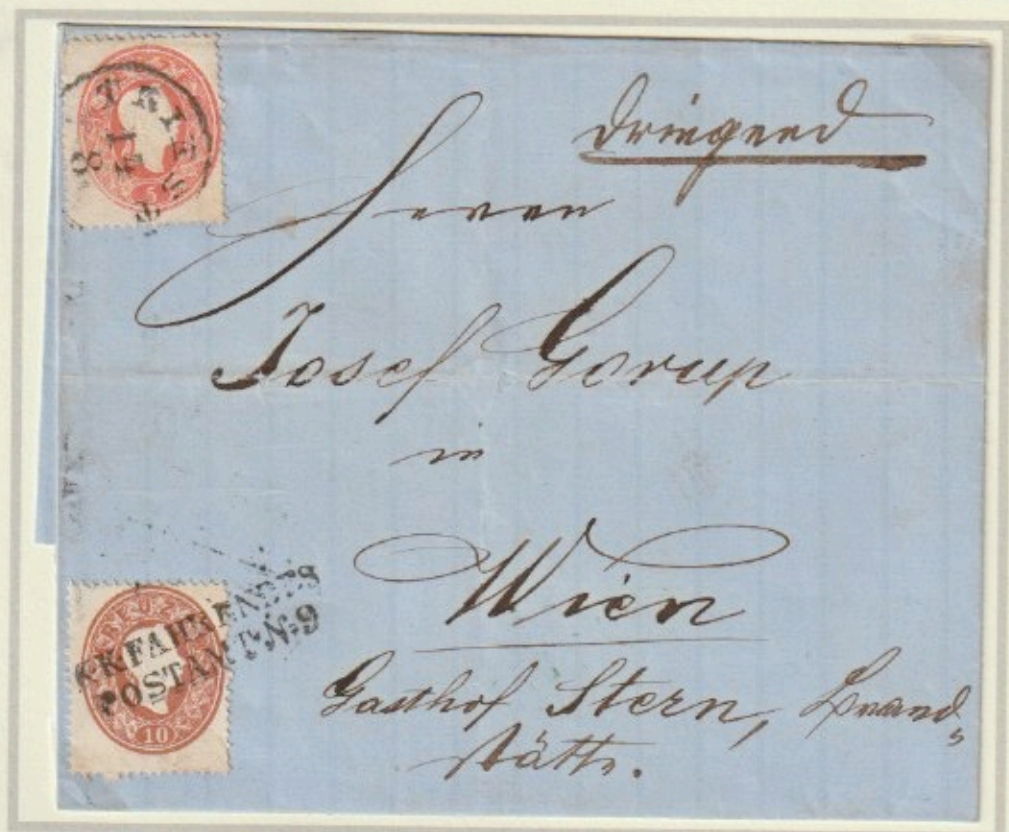 dringend
Herrn
Josef Gorup
in
Wien
Gasthof Stern, Brand„
stätte.
TRIEST
5
K.K.FAHRENDES
POSTAMT No 9
10